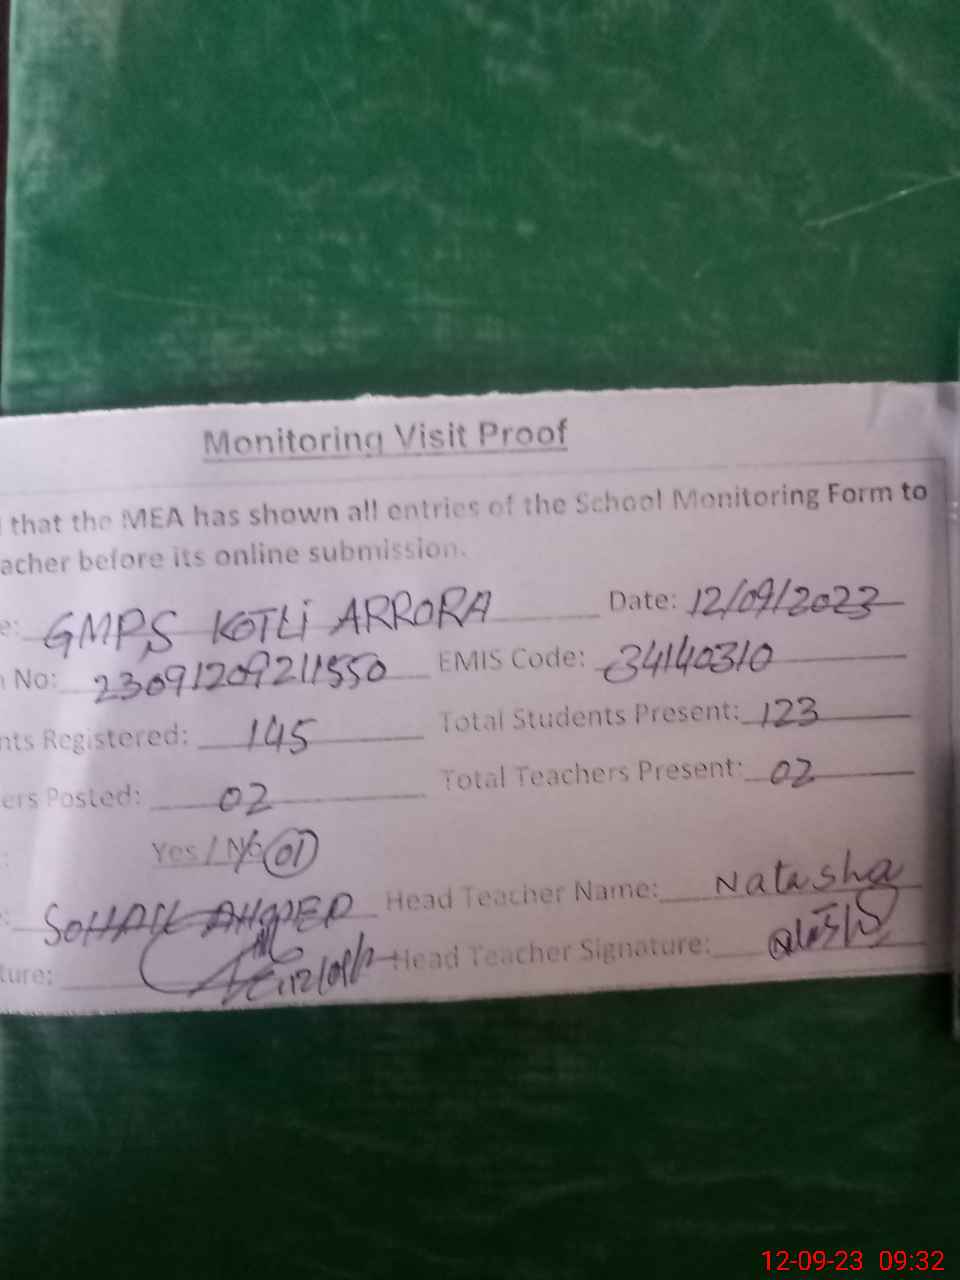 Monitoring Visit Proof
that the MEA has shown all entries of the School Monitoring Form to
acher before its online submission.
e: GMPS KOTLI ARRORA Date: 12/09/2023
No: 23091209211550 EMIS Code: 34140310
nts Registered: 145 Total Students Present: 123
ers Posted: 02 Total Teachers Present: 02
: Yes / No 01
: SOHAIL AHMED Head Teacher Name: Natasha
ture: Head Teacher Signature:
12-09-23 09:32